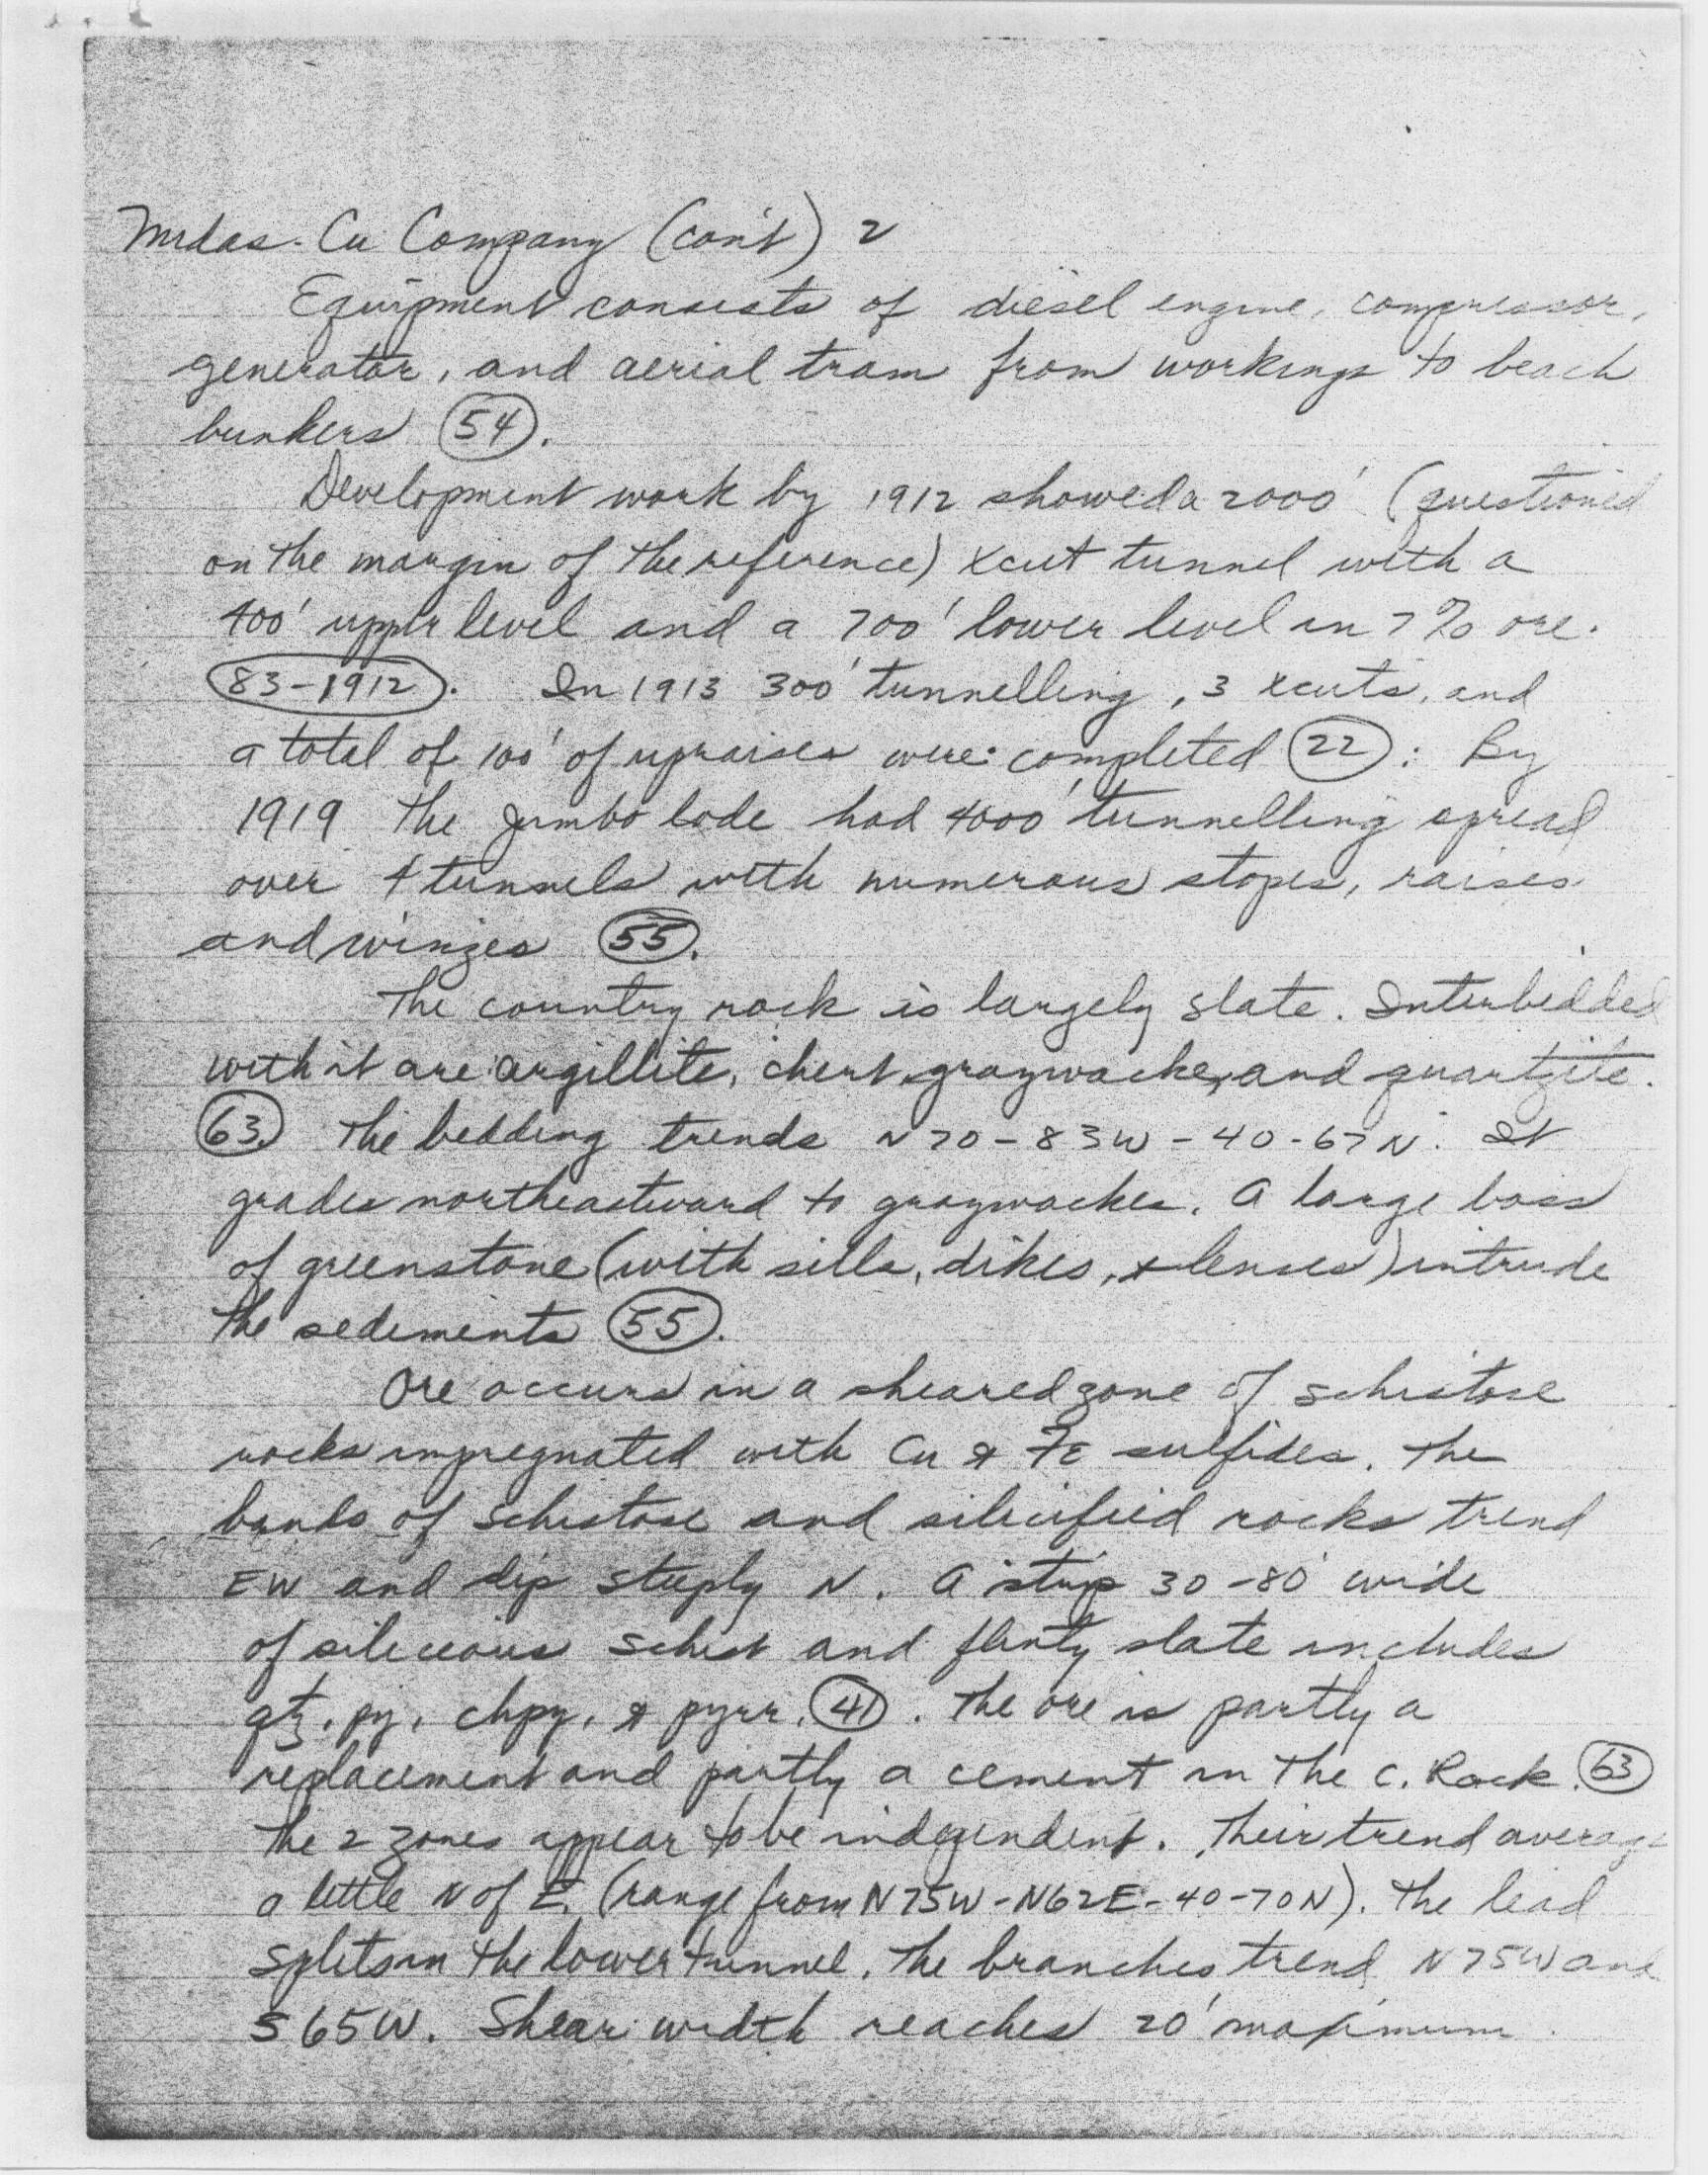 Midas-Cu Company (con't) 2
Equipment consists of diesel engine, compressor,
generator, and aerial tram from workings to beach
bunkers (54).
Development work by 1912 showed a 2000' (questioned
on the margin of the reference) xcut tunnel with a
400' upper level and a 700' lower level in 7% ore.
(83-1912). In 1913 300' tunnelling, 3 xcuts, and
a total of 100' of upraises were completed (22). By
1919 the Jumbo lode had 4000' tunnelling spread
over 4 tunnels with numerous stopes, raises
and winzes (55).
The country rock is largely slate. Interbedded
with it are argillite, chert, graywacke, and quartzite.
(63.) The bedding trends N70-83W-40-67N. It
grades northeastward to graywackes. A large boss
of greenstone (with sills, dikes, & lenses) intrude
the sediments (55).
Ore occurs in a sheared zone of schistose
rocks impregnated with Cu & Fe sulfides. The
bands of schistose and silicified rocks trend
EW and dip steeply N. A strip 30-80' wide
of siliceous schist and flinty slate includes
qtz, py, chpy, & pyrr. (41). The ore is partly a
replacement and partly a cement in the C. Rock. (63)
The 2 zones appear to be independent. Their trend average
a little N of E. (range from N75W-N62E-40-70N). The lead
splits in the lower tunnel. The branches trend N75W and
S65W. Shear width reaches 20' maximum.